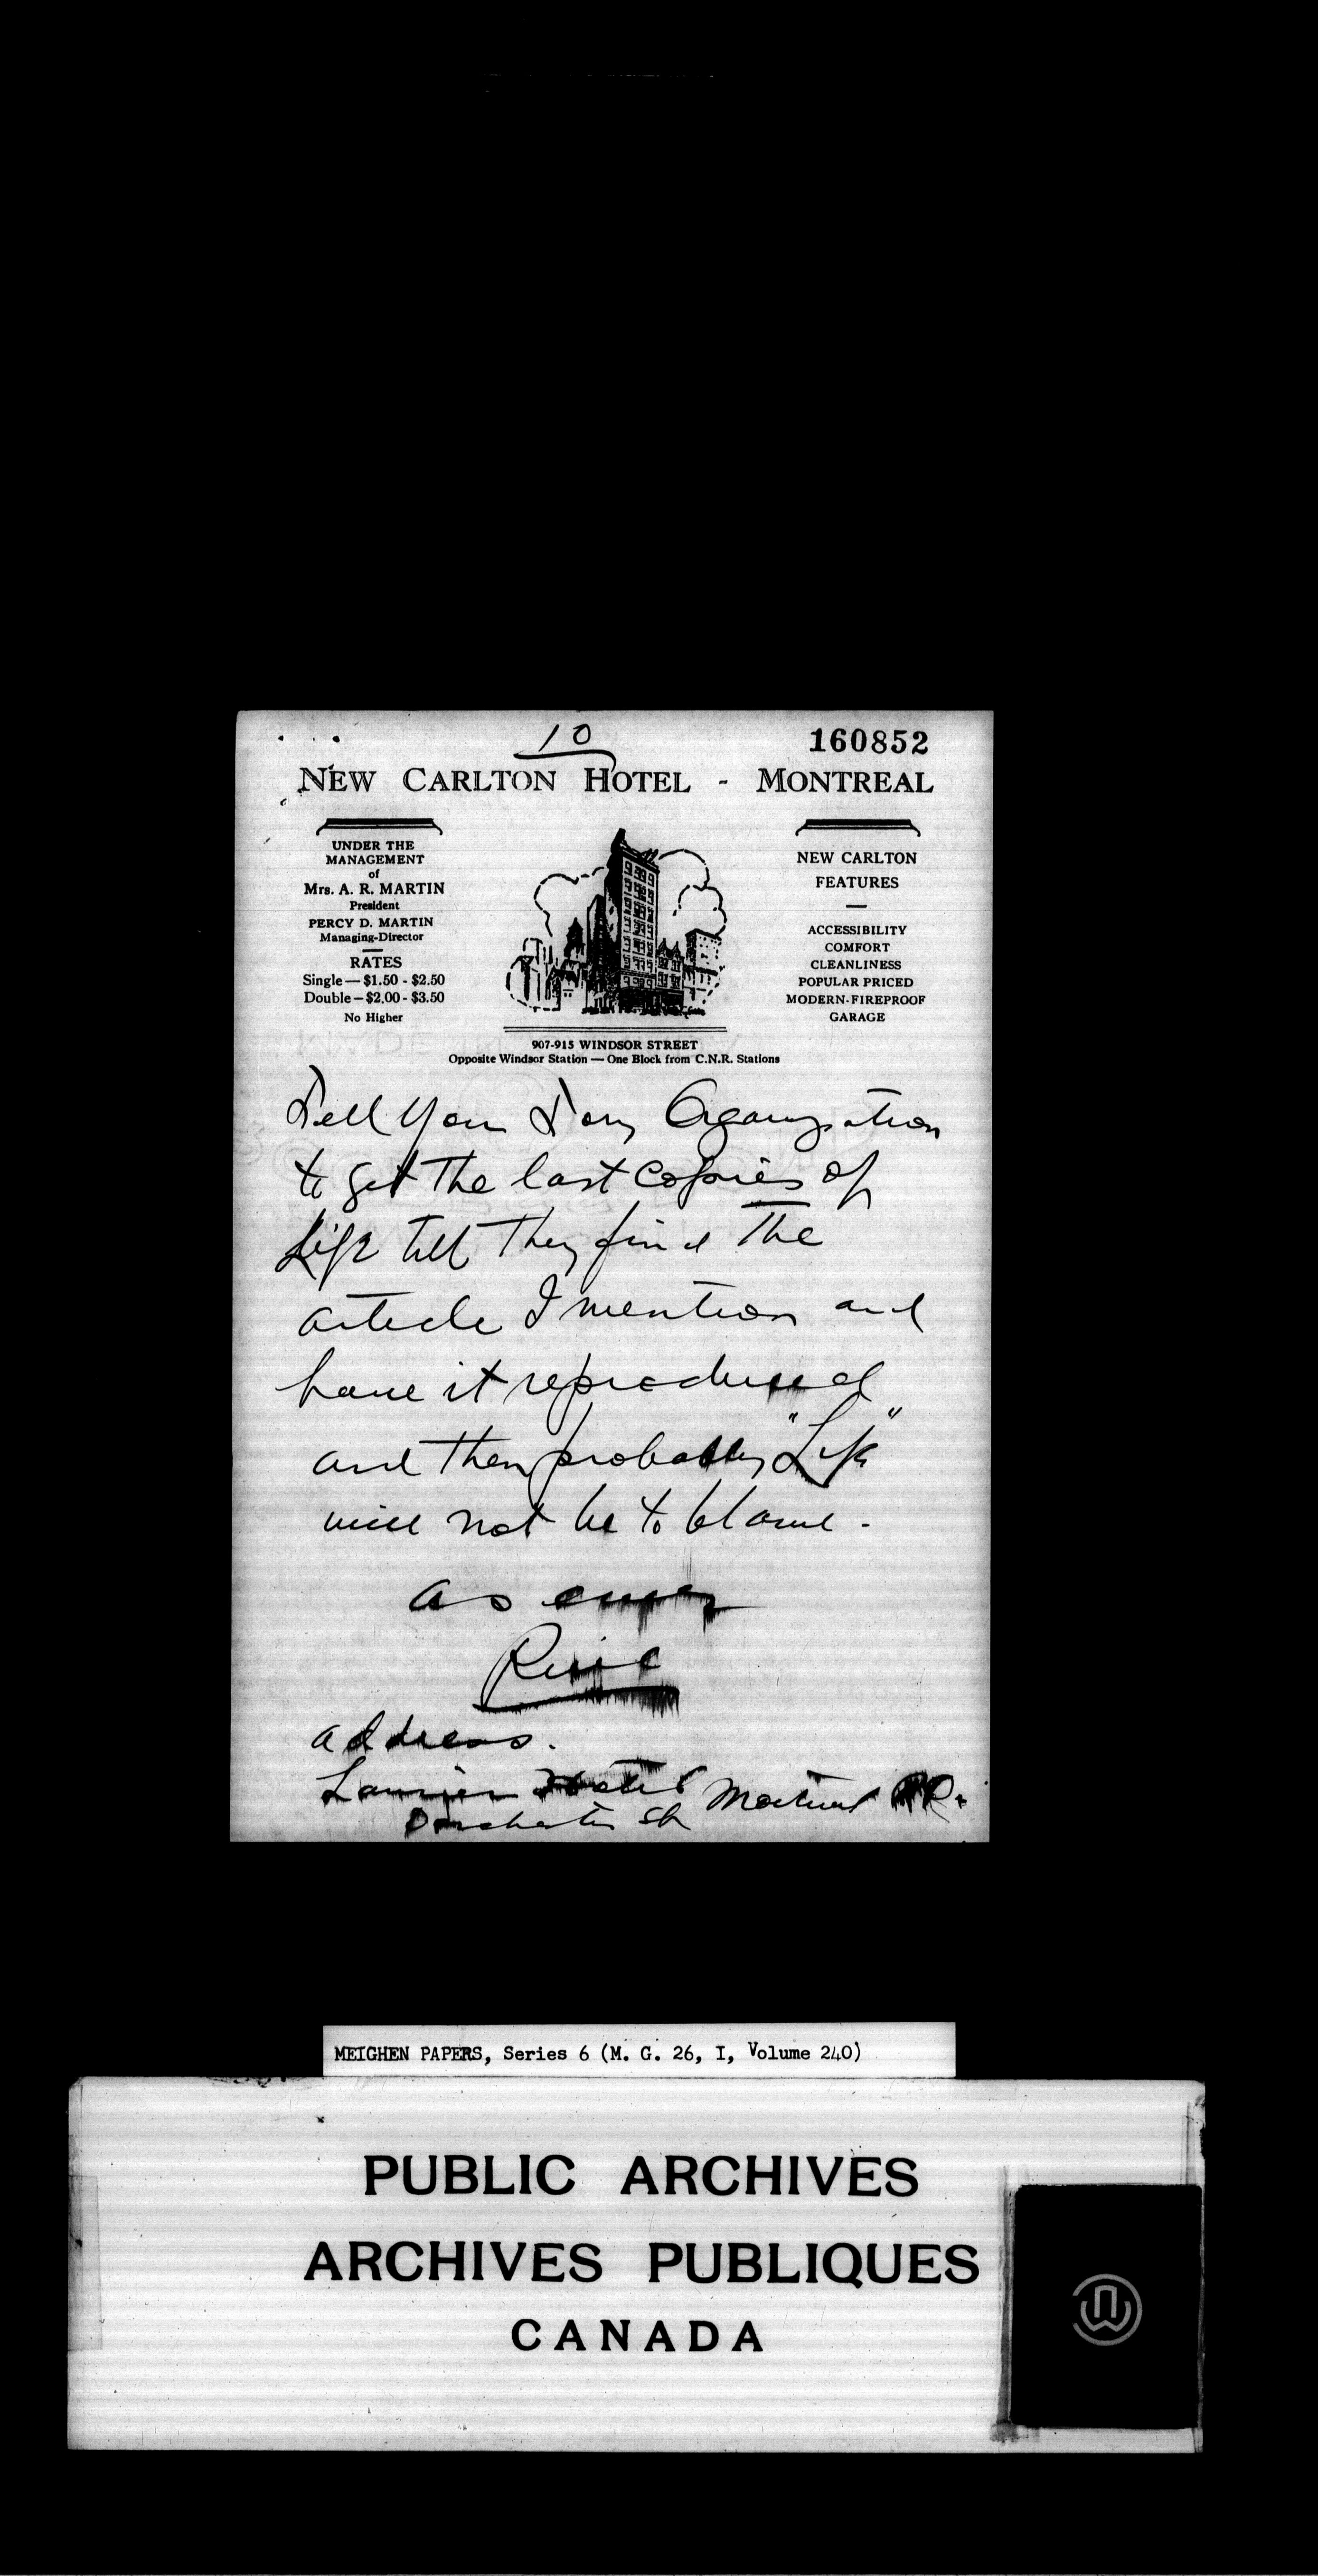 10
160852
NEW CARLTON HOTEL - MONTREAL
UNDER THE
MANAGEMENT
of
Mrs. A. R. MARTIN
President
PERCY D. MARTIN
Managing-Director
RATES
Single — $1.50 - $2.50
Double — $2.00 - $3.50
No Higher
NEW CARLTON
FEATURES
ACCESSIBILITY
COMFORT
CLEANLINESS
POPULAR PRICED
MODERN-FIREPROOF
GARAGE
907-915 WINDSOR STREET
Opposite Windsor Station — One Block from C.N.R. Stations
Tell your Tory Oganization
to get the last copies of
Life till they find the
article I mention and
have it reproduced
and then probably "Life"
will not be to blame -
as ever
address.
Laurier Hotel Montreal
Dorchester St
MEIGHEN PAPERS, Series 6 (M. G. 26, I, Volume 240)
PUBLIC ARCHIVES
ARCHIVES PUBLIQUES
CANADA